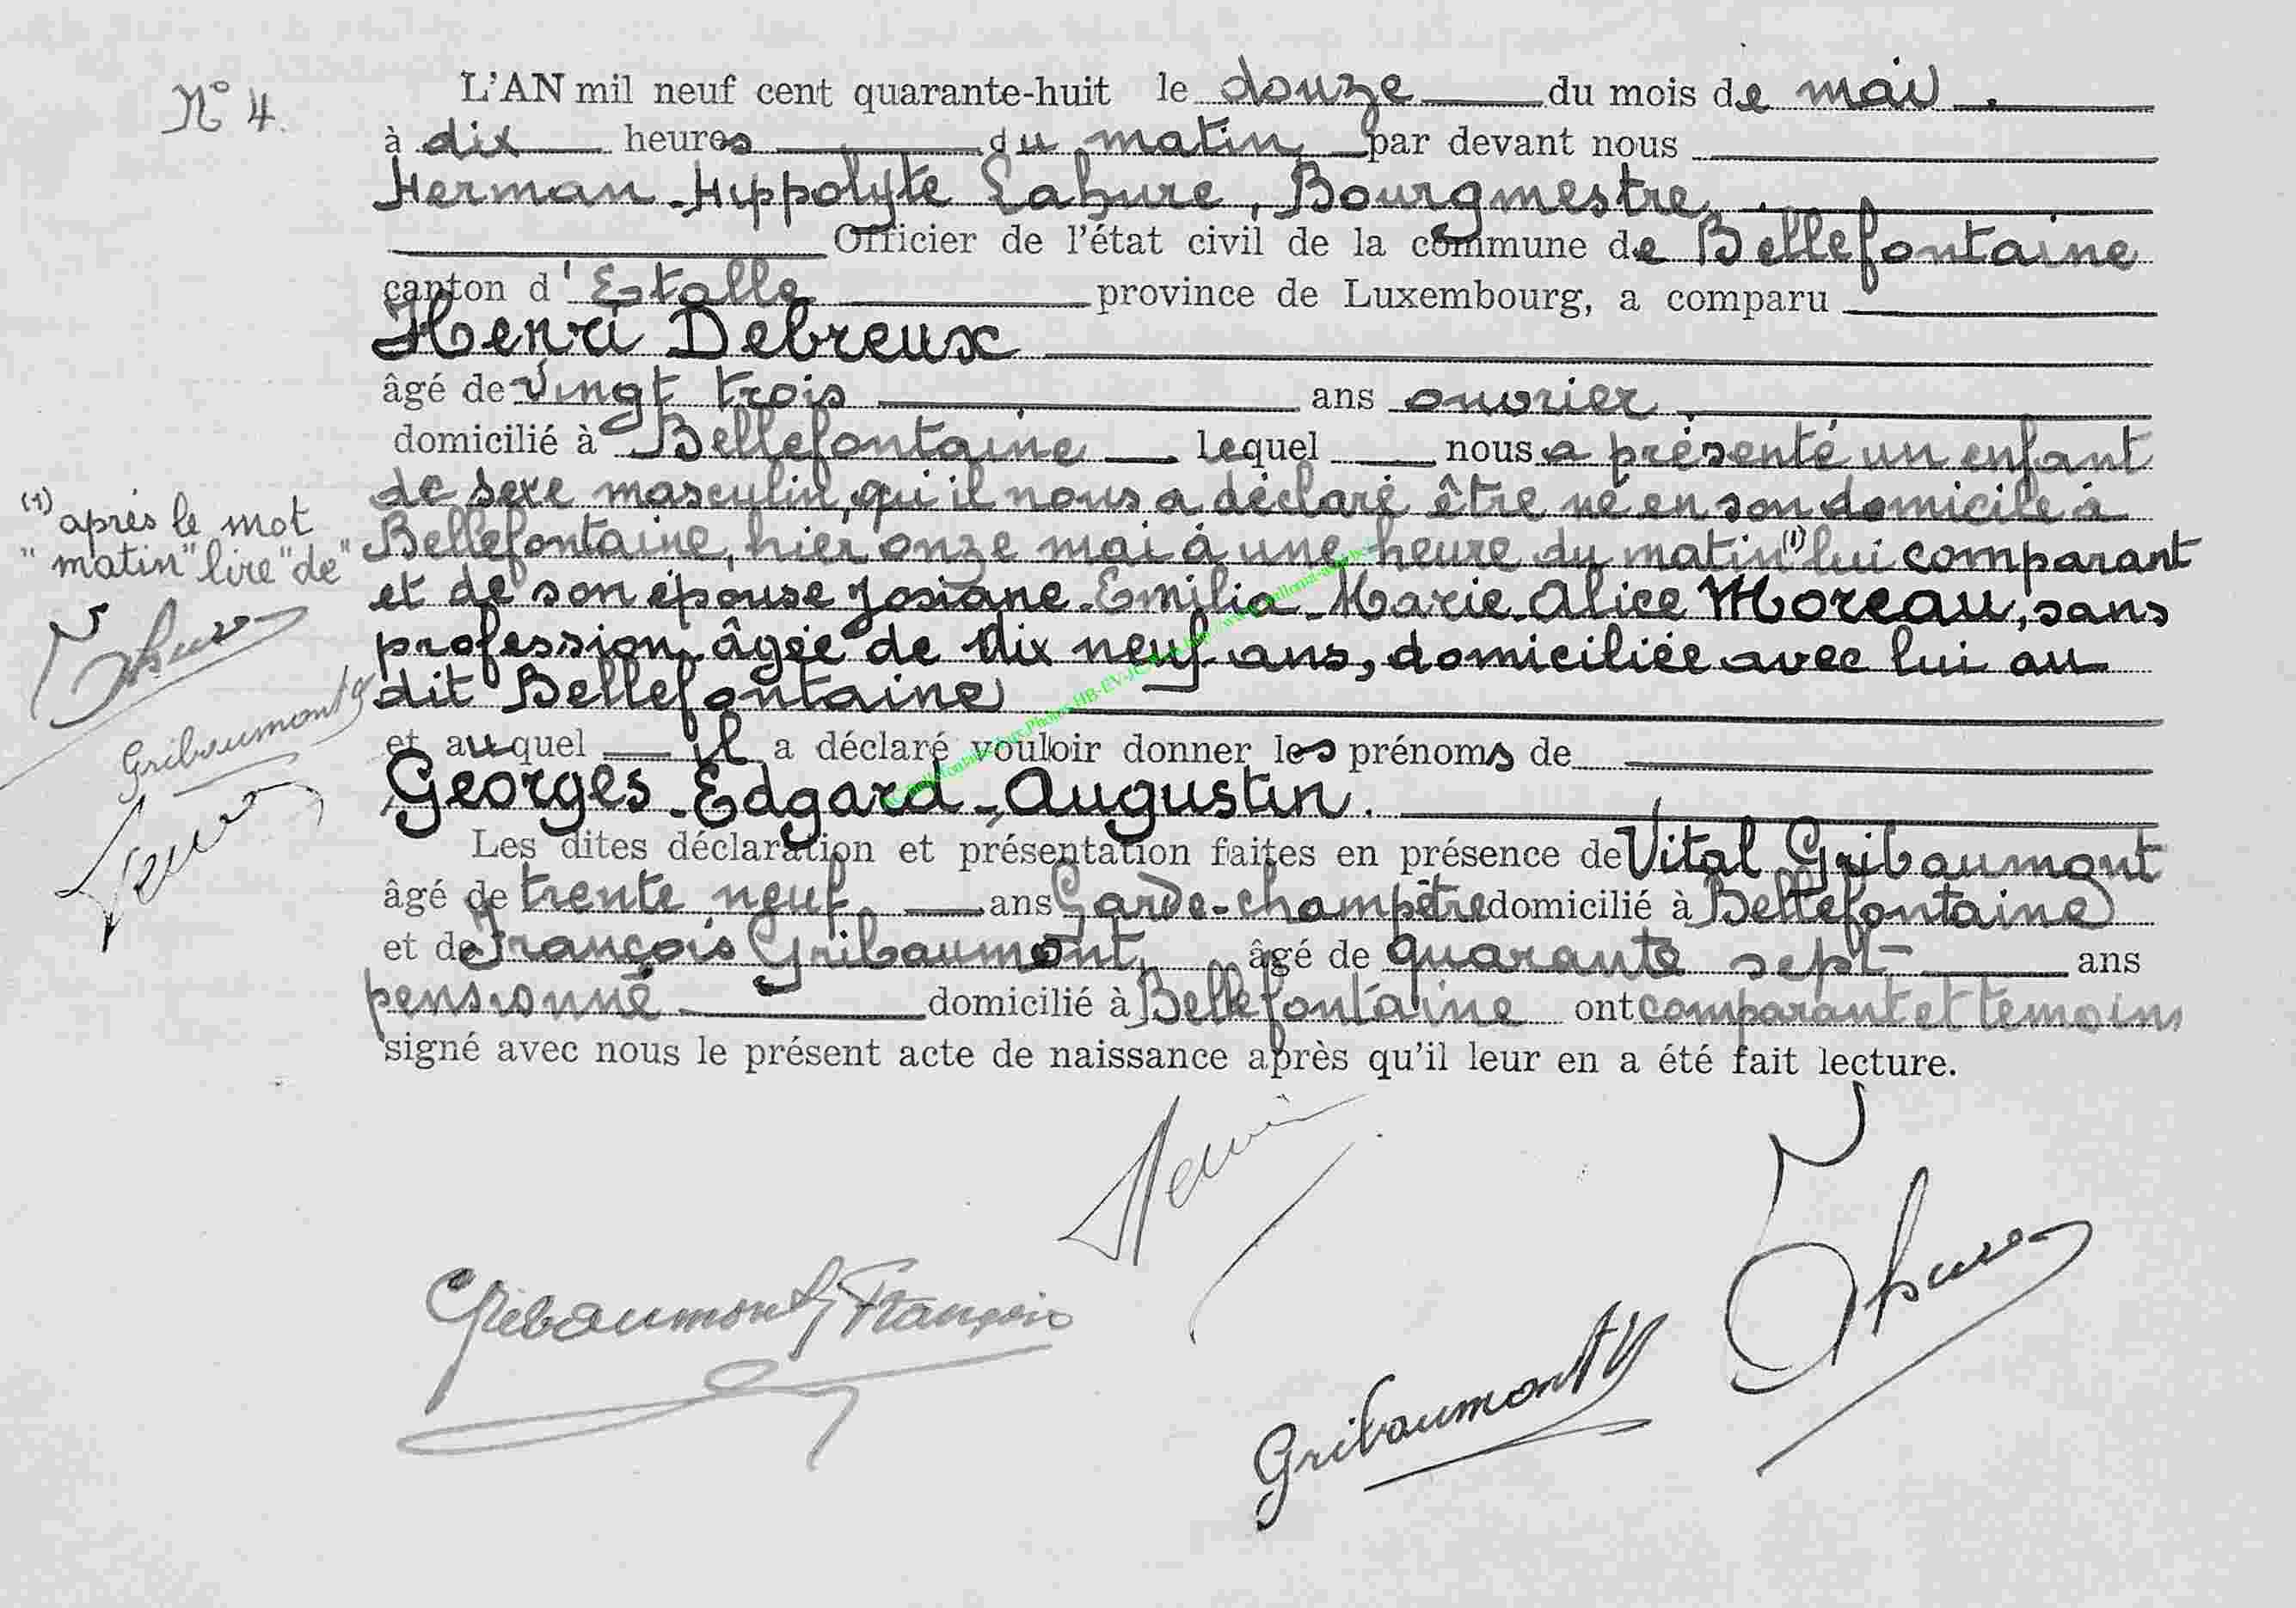 N° 4.
L'AN mil neuf cent quarante-huit le douze du mois de mai.
à dix heures du matin par devant nous
Herman-Hippolyte Lahure, Bourgmestre,
Officier de l'état civil de la commune de Bellefontaine
canton d'Etalle province de Luxembourg, a comparu
Henri Debreux
âgé de vingt trois ans ouvrier.
domicilié à Bellefontaine lequel nous a présenté un enfant
de sexe masculin, qu'il nous a déclaré être né en son domicile à
Bellefontaine, hier onze mai à une heure du matin (1) lui comparant
et de son épouse Josiane-Emilia-Marie-Alice Moreau, sans
profession, âgée de dix neuf ans, domiciliée avec lui au
dit Bellefontaine
et auquel il a déclaré vouloir donner les prénoms de
Georges-Edgard-Augustin.
Les dites déclaration et présentation faites en présence de Vital Gribaumont
âgé de trente neuf ans Garde-champêtre domicilié à Bellefontaine
et de François Gribaumont, âgé de quarante sept ans
pensionné domicilié à Bellefontaine ont comparant et temoins
signé avec nous le présent acte de naissance après qu'il leur en a été fait lecture.
(1) après le mot
"matin" lire "de"
Gribaumont
Gribaumont François
Gribaumont V